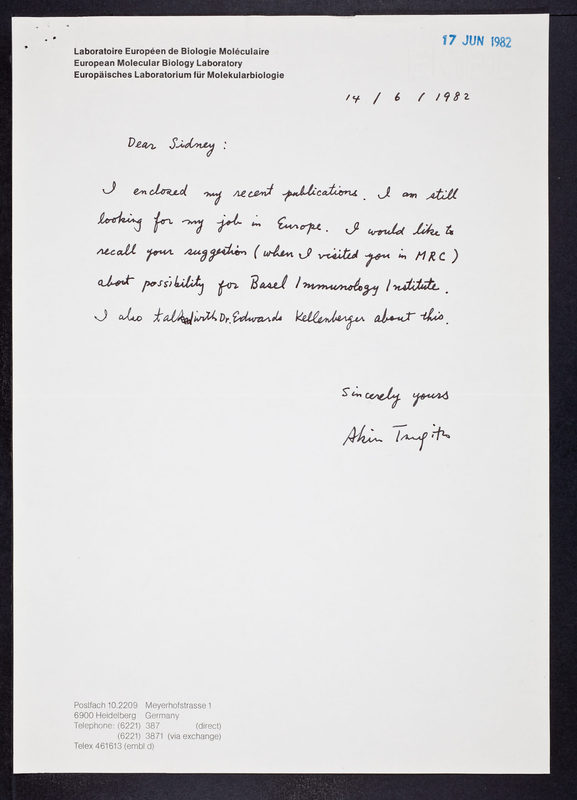 Laboratoire Européen de Biologie Moléculaire
European Molecular Biology Laboratory
Europäisches Laboratorium für Molekularbiologie
17 JUN 1982
14 / 6 / 1982
Dear Sidney :
I enclosed my recent publications. I am still
looking for my job in Europe. I would like to
recall your suggestion (when I visited you in MRC)
about possibility for Basel Immunology Institute.
I also talked with Dr. Edwards Kellenberger about this.
Sincerely yours
Akira Tsugita
Postfach 10.2209 Meyerhofstrasse 1
6900 Heidelberg Germany
Telephone: (6221) 387 (direct)
(6221) 3871 (via exchange)
Telex 461613 (embl d)